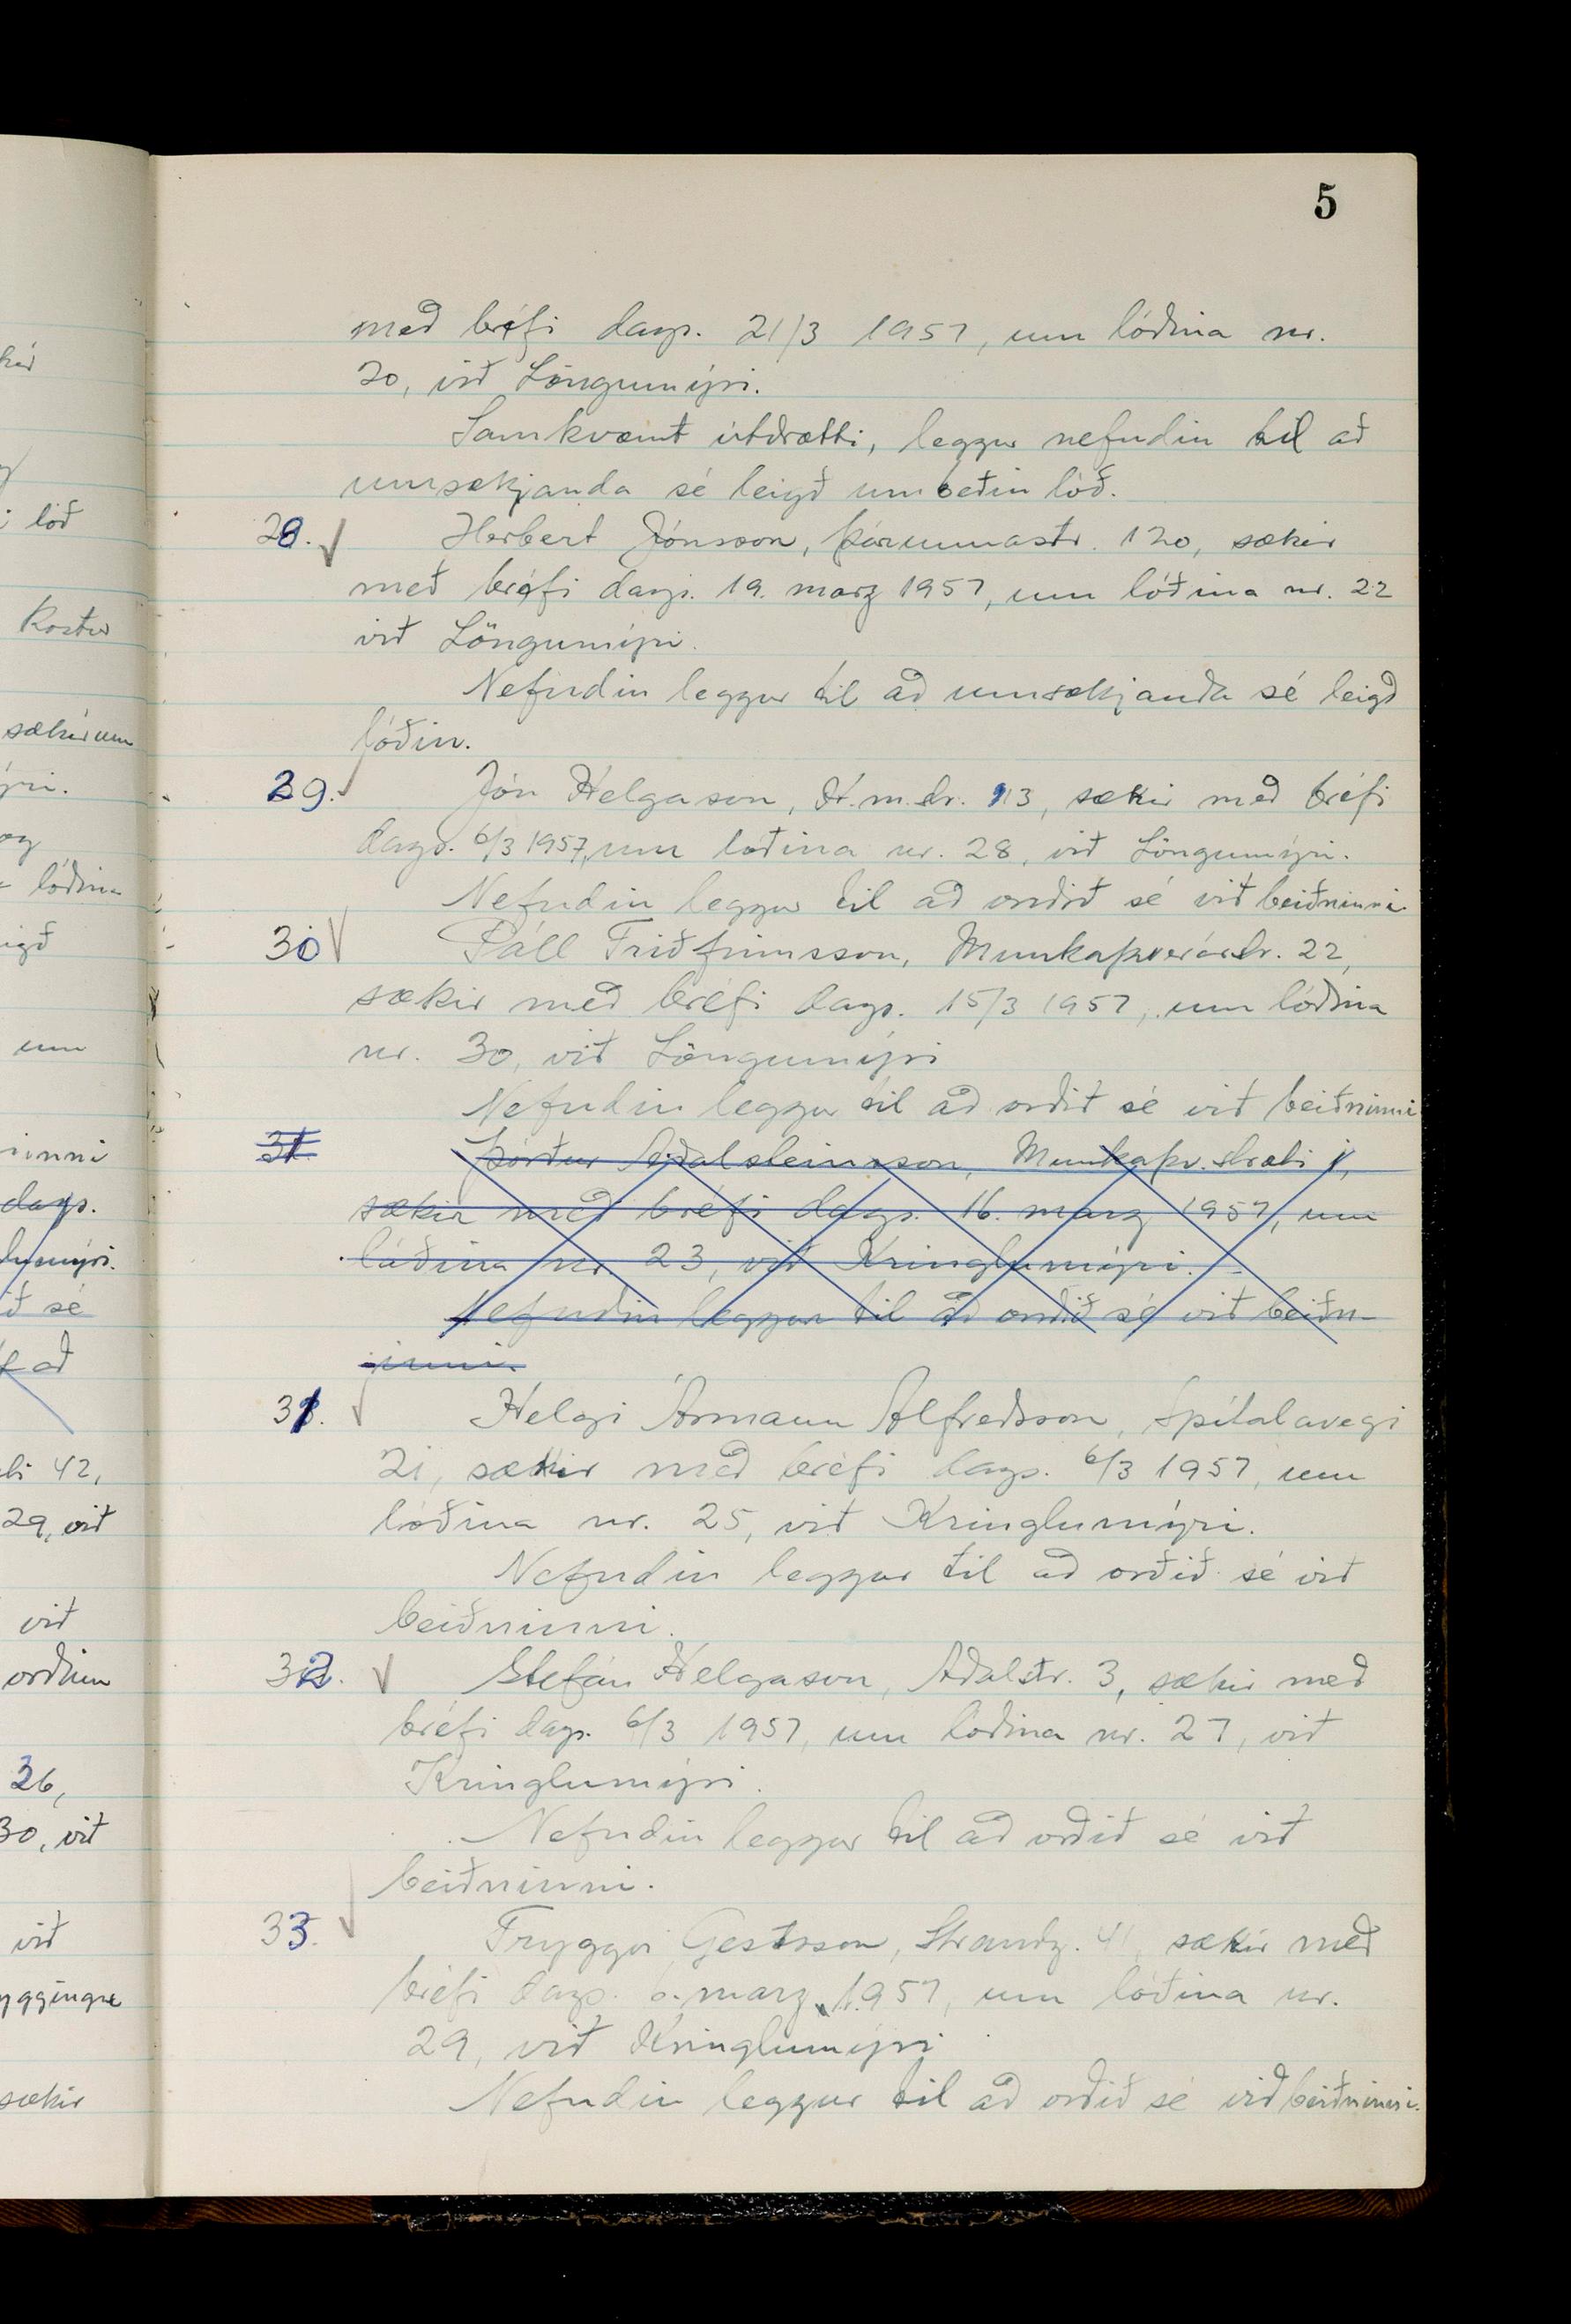 5
með bréfi dags. 21/3 1957, um lóðina nr.
20, við Löngumýri.
Samkvæmt útdrætti, leggur nefndin til að
umsækjanda sé leigð umbeðin lóð.
28. Herbert Jónsson, Þórunnastr. 120, sækir
með bréfi dags. 19. marz 1957, um lóðina nr. 22
við Löngumýri.
Nefndin leggur til að umsækjanda sé leigð
lóðin.
29. Jón Helgason, H.m.str. 113, sækir með bréfi
dags. 6/3 1957, um lóðina nr. 28, við Löngumýri.
Nefndin leggur til að orðið sé við beiðninni
30 Páll Friðfinnsson, Munkaþverárstr. 22,
sækir með bréfi dags. 15/3 1957, um lóðina
nr. 30, við Löngumýri
Nefndin leggur til að orðið sé við beiðninni
31 Þórður Aðalsteinsson, Munkaþv.stræti 1,
sækir með bréfi dags. 16. marz 1957, um
lóðina nr. 23, við Kringlumýri.
Nefndin leggur til að orðið sé við beiðn-
inni.
31. Helgi Ármann Alfreðsson, Spítalavegi
21, sækir með bréfi dags. 6/3 1957, um
lóðina nr. 25, við Kringlumýri.
Nefndin leggur til að orðið sé við
beiðninni.
32. Stefán Helgason, Aðalstr. 3, sækir með
bréfi dags. 6/3 1957, um lóðina nr. 27, við
Kringlumýri.
Nefndin leggur til að orðið sé við
beiðninni.
33. Tryggvi Gestsson, Strandg. 41, sækir með
bréfi dags. 6. marz 1957, um lóðina nr.
29, við Kringlumýri
Nefndin leggur til að orðið sé við beiðninni.